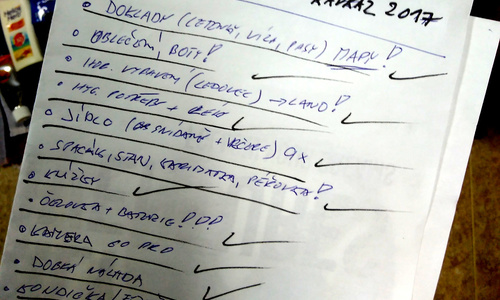 KAVKAZ 2017
• DOKLADY (LETENKY, VÍZA, PASY) MAPY!
• OBLEČENÍ, BOTY!
• (LEDOVEC) → LANO!
• HYG. POTŘEBY +
• JÍDLO (9X SNÍDANĚ + VEČEŘE) 9X
• SPACÁK, STAN, KARIMATKA, PÉŘOVKA!
•
• ČELOVKA + BATERIE!!!
• KAMERA GO PRO
• DOBRÁ NÁLADA
• KONDIČKA